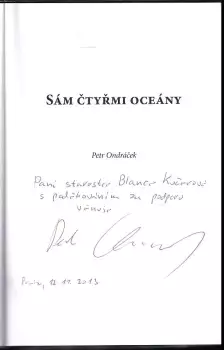 SÁM ČTYŘMI OCEÁNY
Petr Ondráček
Paní starostce Blance Kučerové
s poděkováním za podporu
věnuje
12.12.2013